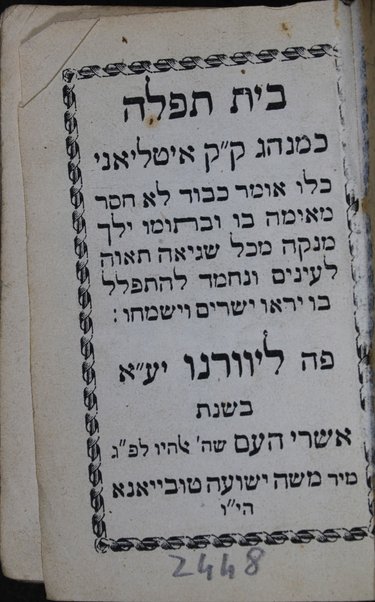 בית תפלה
כמנהג ק״ק איטליאני
כלו אומר כבוד לא חסר
מאומה בו ובתומו ילך
מנקה מכל שגיאה תאוה
לעינים ונחמד להתפלל
בו יראו ישרים וישמחו :
פה ליוורנו יע״א
בשנת
אשרי העם שה' אהיו לפ״ג
מיר משה ישועה טובייאנא
הי״ו
2448